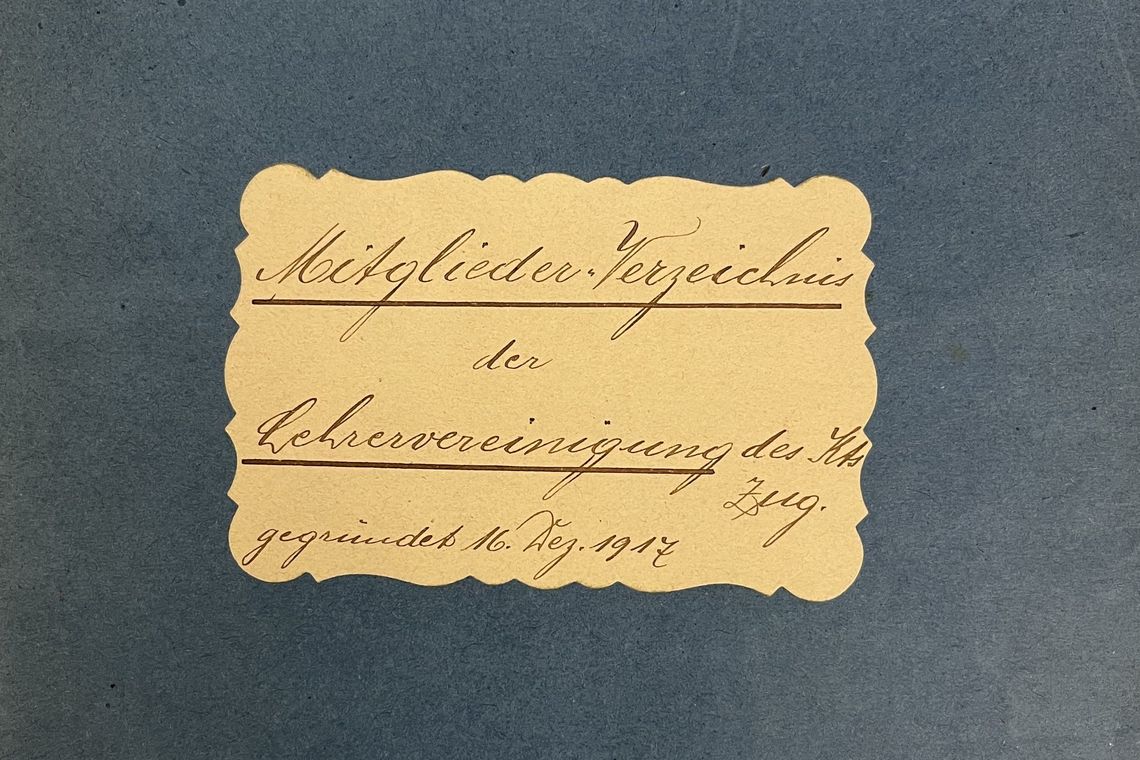 Mitglieder-Verzeichnis
der
Lehrervereinigung des Kts
Zug.
gegründet 16. Dez. 1917